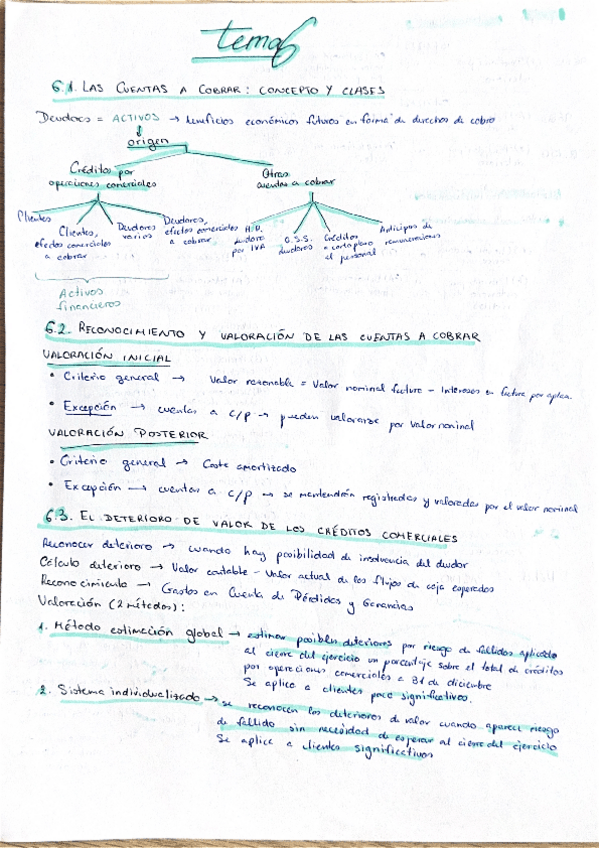 tema 6
6.1. LAS CUENTAS A COBRAR: CONCEPTO Y CLASES
Deudores = ACTIVOS → beneficios económicos futuros en forma de derechos de cobro
origen
Créditos por
operaciones comerciales
Otras
cuentas a cobrar
Clientes
Clientes,
efectos comerciales
a cobrar
Deudores
varios
Deudores,
efectos comerciales
a cobrar
H.P.
deudora
por IVA
O.S.S.
deudores
Créditos
a corto plazo
al personal
Anticipos de
remuneraciones
Activos
financieros
6.2. RECONOCIMIENTO Y VALORACIÓN DE LAS CUENTAS A COBRAR
VALORACIÓN INICIAL
• Criterio general → Valor razonable = Valor nominal factura - Intereses en factura por aplaz.
• Excepción → cuentas a c/p → pueden valorarse por valor nominal
VALORACIÓN POSTERIOR
• Criterio general → Coste amortizado
• Excepción → cuentas a c/p → se mantendrán registradas y valoradas por el valor nominal
6.3. EL DETERIORO DE VALOR DE LOS CRÉDITOS COMERCIALES
Reconocer deterioro → cuando hay posibilidad de insolvencia del deudor
Cálculo deterioro → Valor contable - Valor actual de los flujos de caja esperados
Reconocimiento → Gastos en Cuenta de Pérdidas y Ganancias
Valoración (2 métodos):
1. Método estimación global → estimar posibles deterioros por riesgo de fallidos aplicado
al cierre del ejercicio un porcentaje sobre el total de créditos
por operaciones comerciales a 31 de diciembre
Se aplica a clientes poco significativos.
2. Sistema individualizado → se reconocen los deterioros de valor cuando aparece riesgo
de fallido sin necesidad de esperar al cierre del ejercicio
Se aplica a clientes significativos